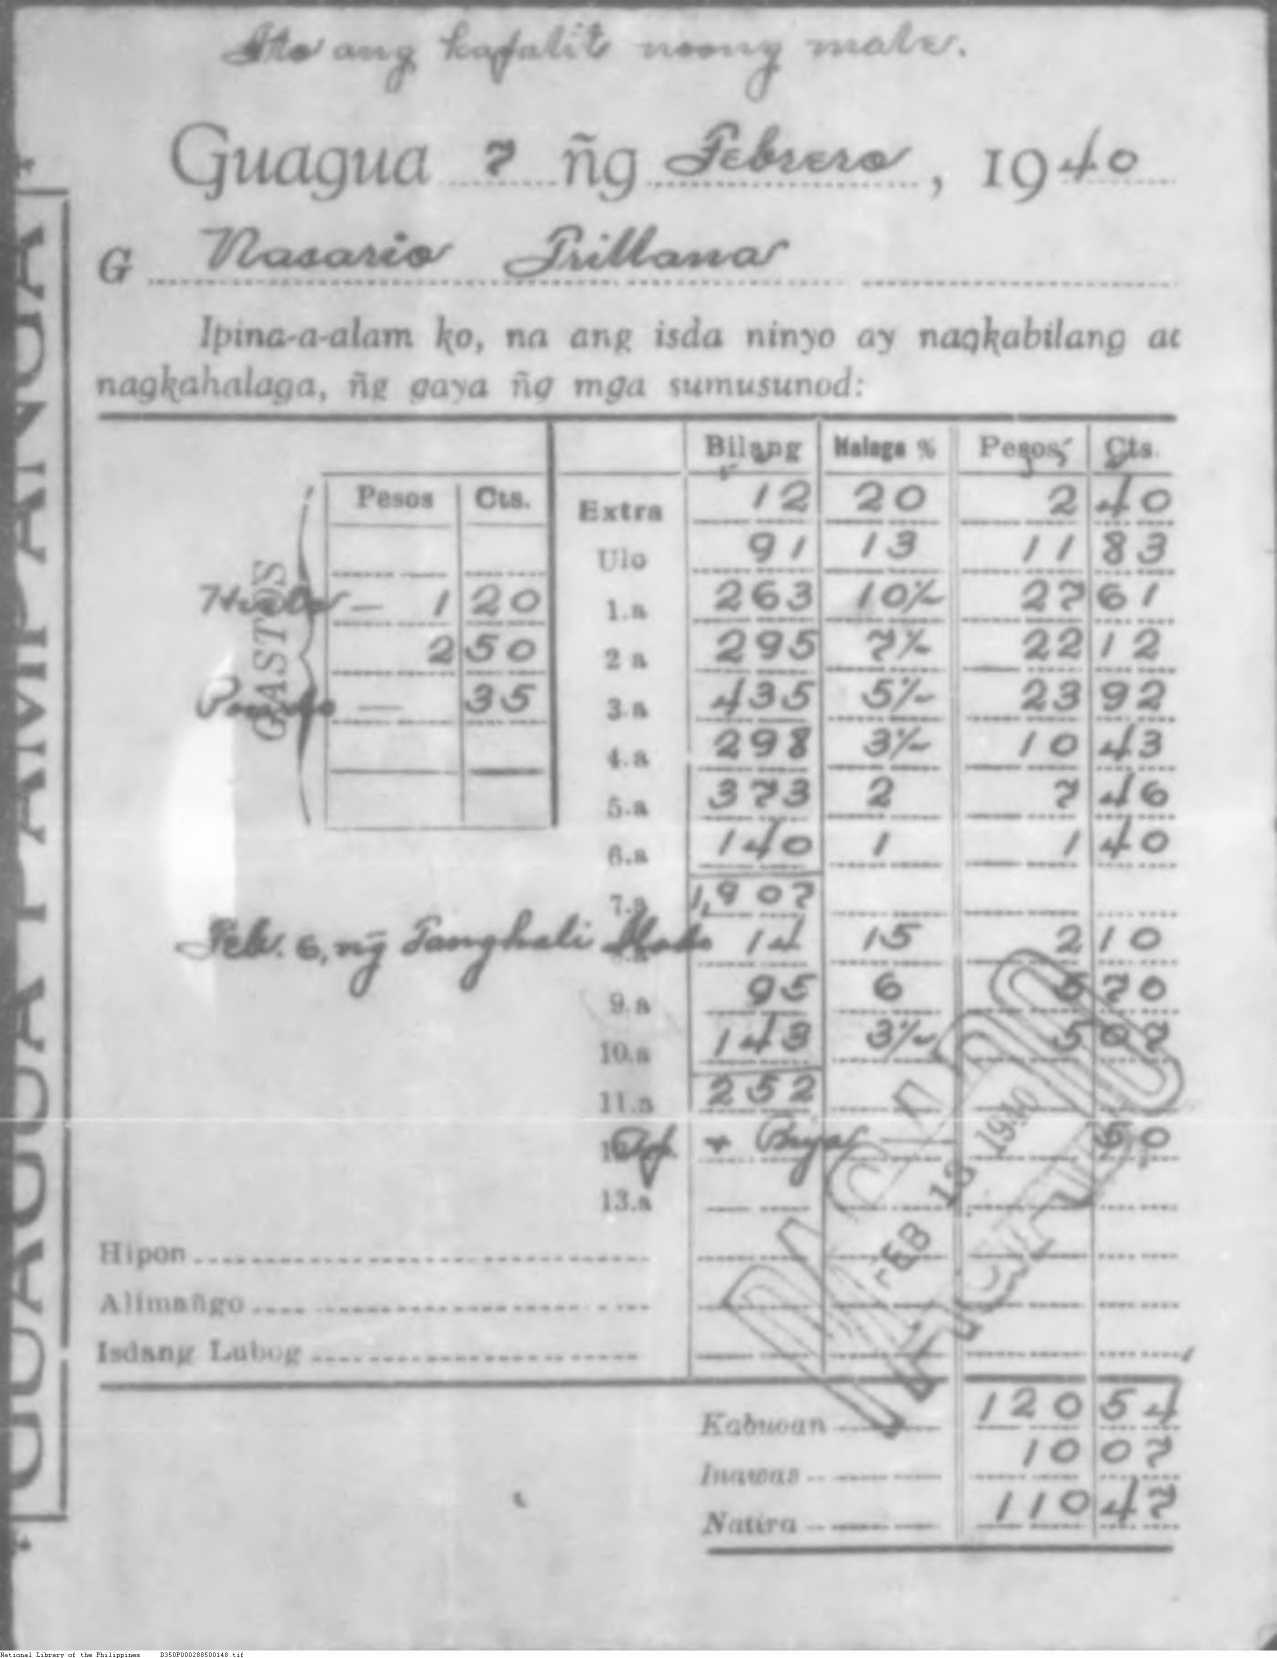 Ito ang kapalit noong male.
Guagua 7 ñg Febrero, 1940
G Nasario Trillana
Ipina-a-alam ko, na ang isda ninyo ay nagkabilang at
nagkahalaga, ñg gaya ñg mga sumusunod:
GUAGUA PAMPANGA
GASTOS
Pesos Cts.
1 20
2 50
35
Bilang Halaga % Pesos Cts.
Extra 12 20 2 40
Ulo 91 13 11 83
1.a 263 10½ 27 61
2 a 295 7½ 22 12
3.a 435 5½ 23 92
4.a 298 3½ 10 43
5.a 373 2 7 46
6.a 140 1 1 40
7.a 1,907
Feb. 6, ng Tanghali 14 15 2 10
9.a 95 6 5 70
10.a 143 3½ 5 07
11.a 252
+ Biya 50
13.a
Hipon
Alimañgo
Isdang Lubog
FEB 13 1940
Kabuoan 120 54
Inawas 10 07
Natira 110 47
National Library of the Philippines D350P000288500148.tif